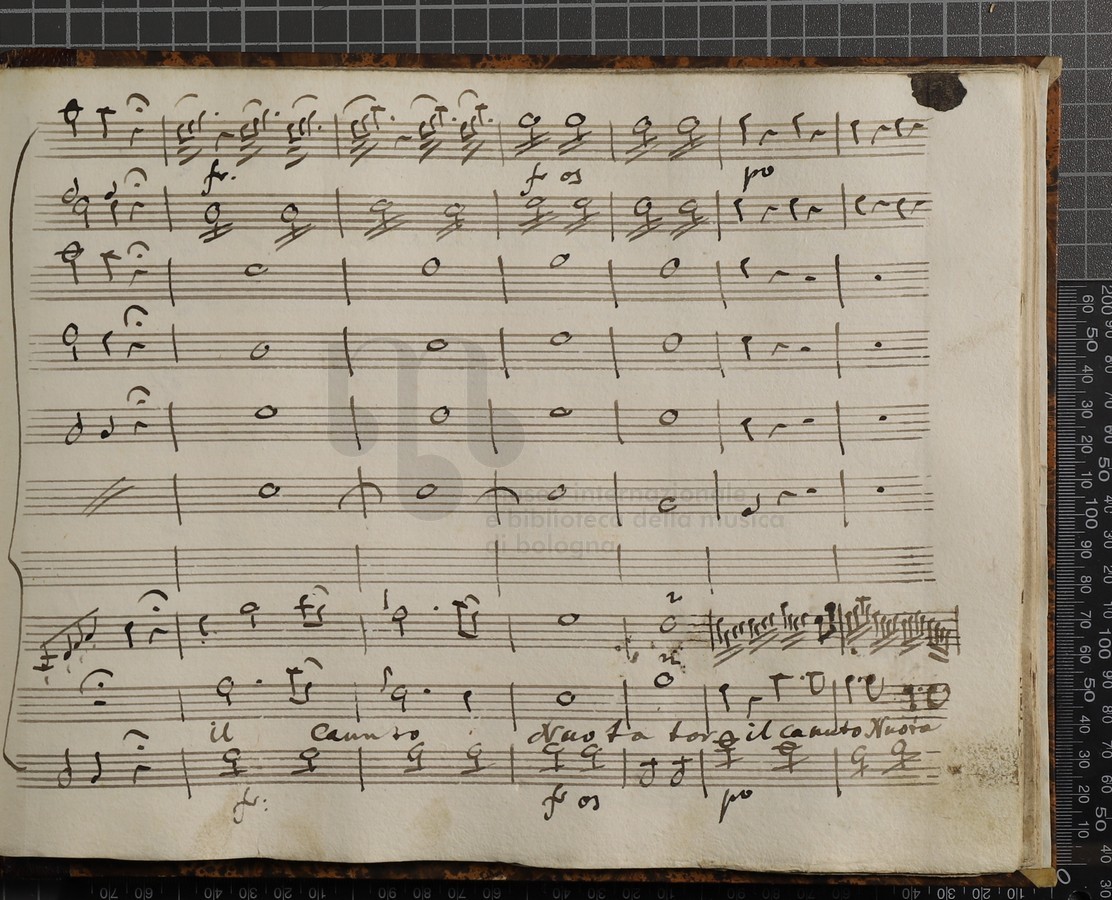 fr.
fr os
po
museo internazionale
e biblioteca della musica
di bologna
il canuto Nuotator il canuto Nuota
fr:
fr os
po